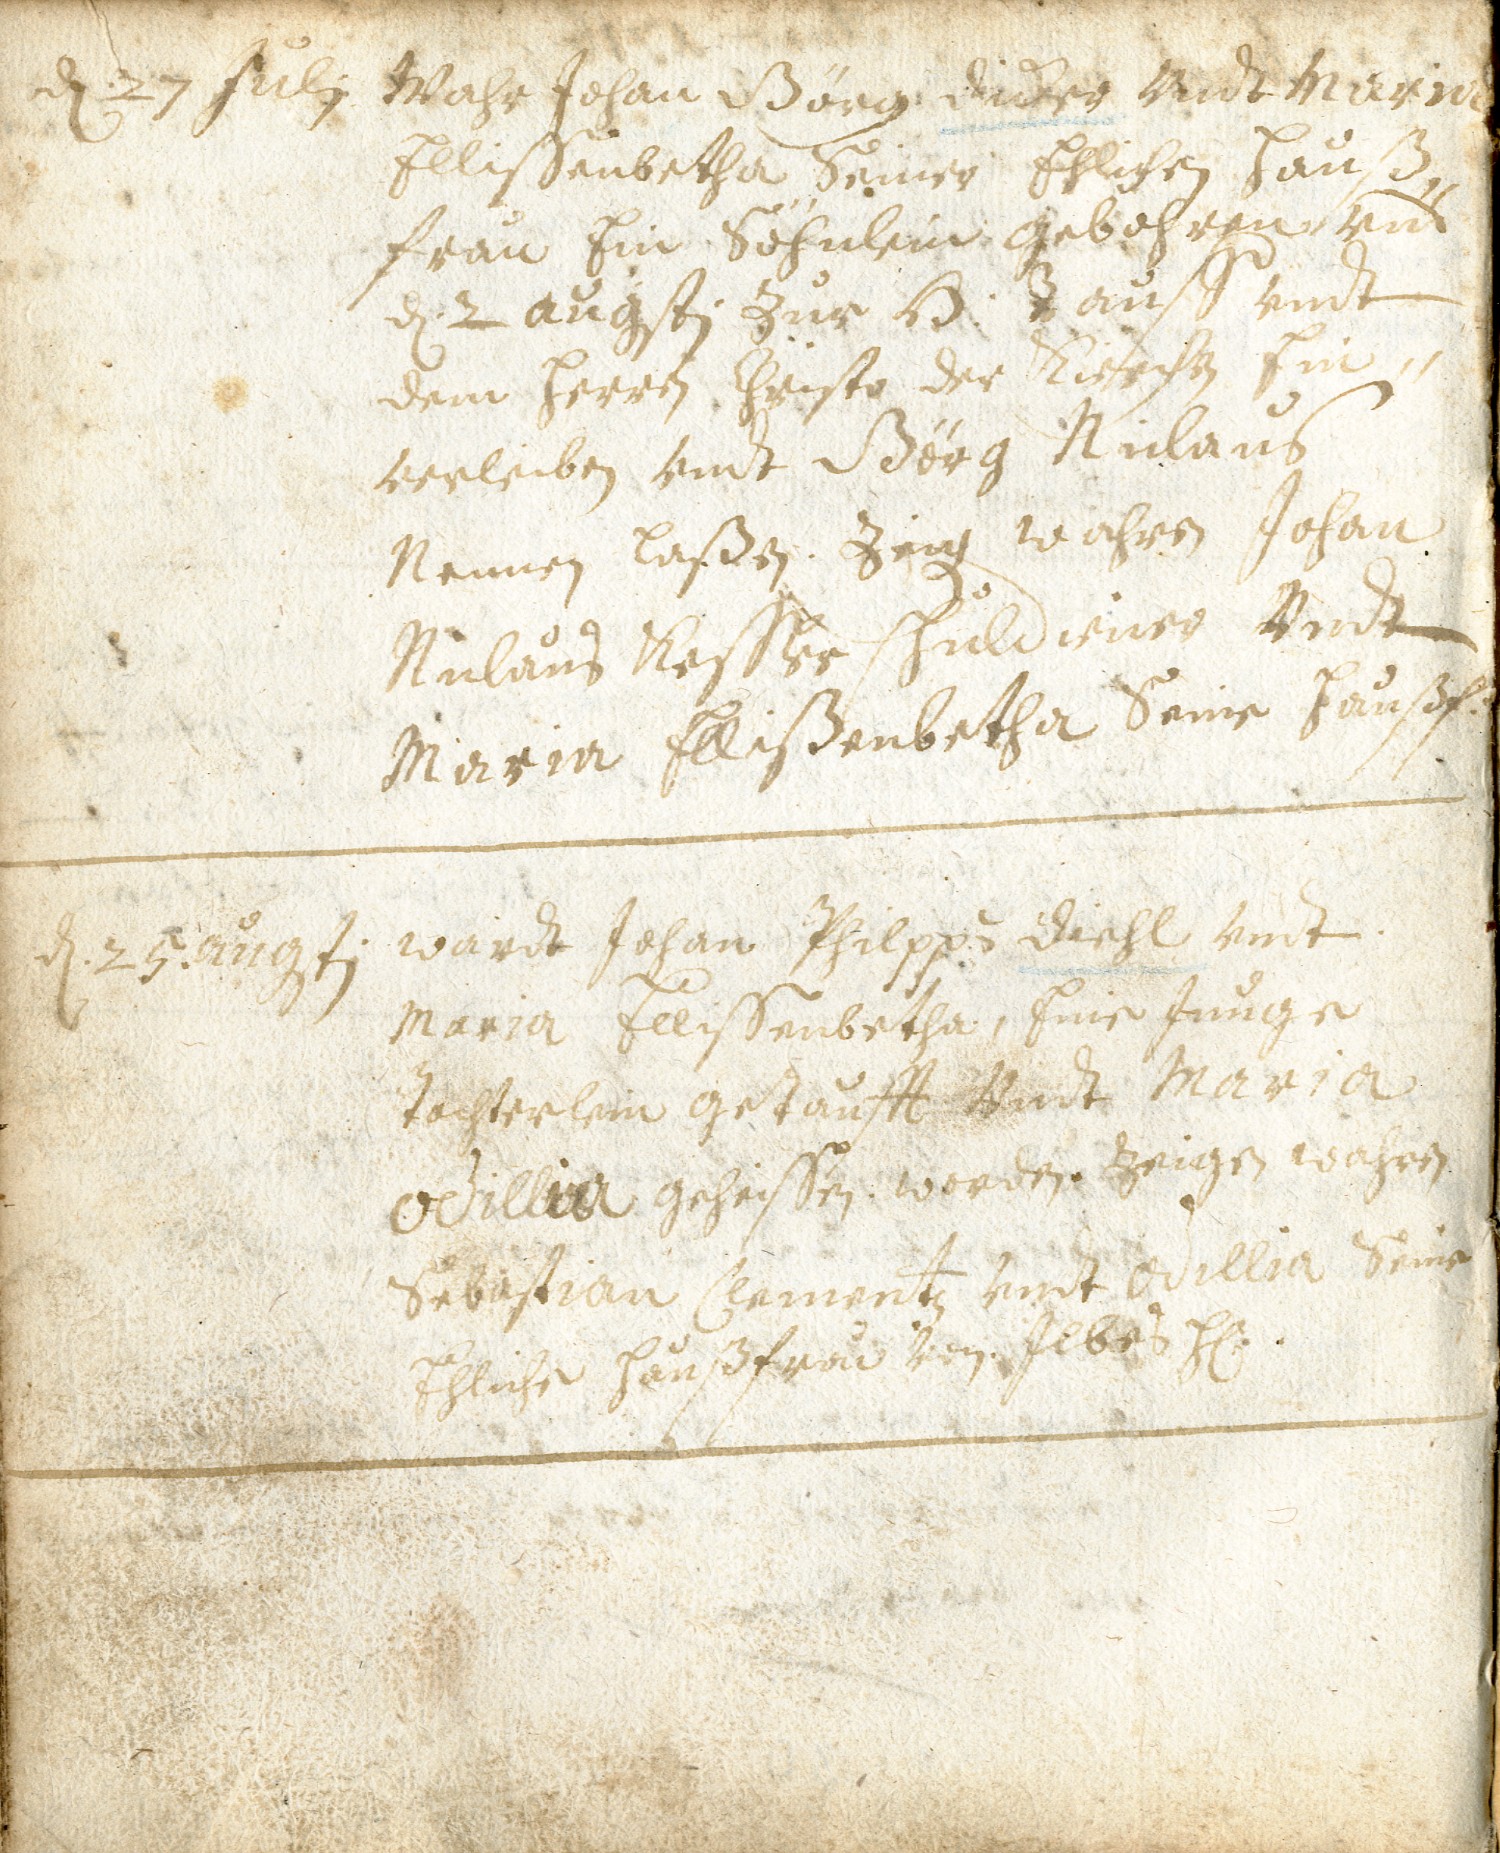 d. 27 Julj Wahr Johan Görg diener Vndt Maria
Ellissenbetha Seiner Ehlichen Hauß„
frau Ein Söhnlein gebohren, vnd
d. 2 augstj Zur H. Tauff vndt
dem Herren Christo der Kirchen Ein„
verleiben vndt Görg Niclaus
Nennen laßen. Zeug wahren Johan
Niclaus Kessler Schuldiener Vndt
Maria Ellißenbetha Seine Haußf.
d. 25. augstj wardt Johan Philpps diehl vndt
Maria Ellissenbetha, Eine Junge
Tochterlein getaufft Vndt Maria
Odillia geheissen worden. Zeigen wahren
Sebastian Clementz vndt Odillia Seine
Ehliche Haußfrau von Ilbesh.